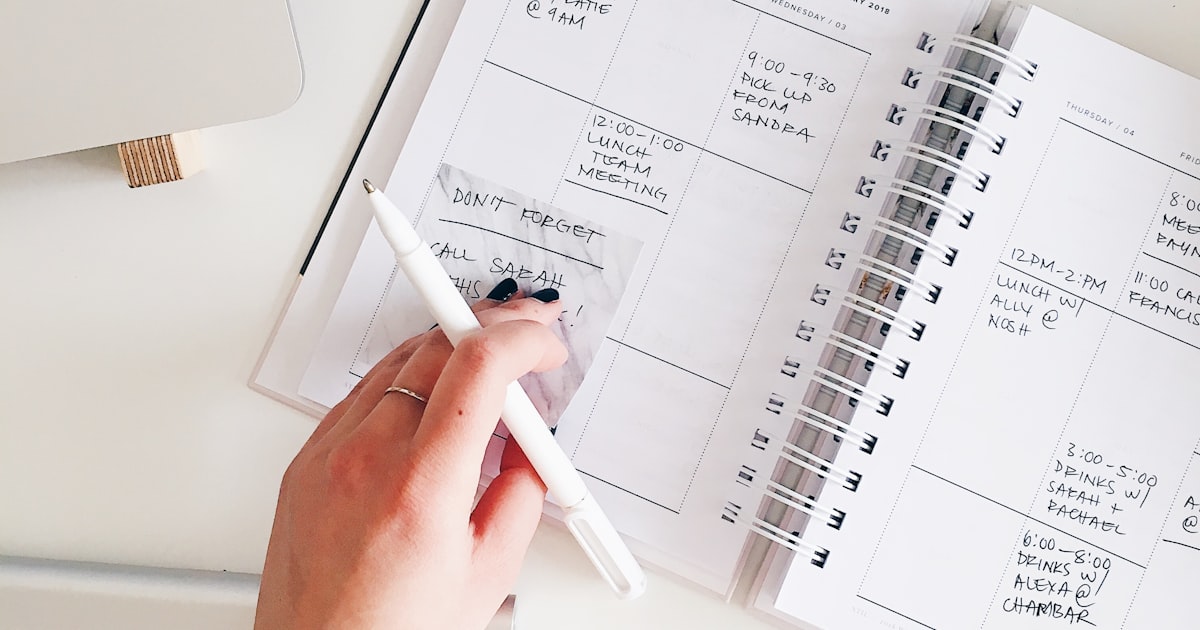 @ 9AM
2018
WEDNESDAY / 03
9:00 - 9:30
PICK UP
FROM
SANDRA
12:00-1:00
LUNCH
TEAM
MEETING
DON'T FORGET
CALL SARAH
THURSDAY / 04
12PM-2PM
LUNCH W/
ALLY @
NOSH
3:00-5:00
DRINKS W/
SARAH +
RACHAEL
6:00-8:00
DRINKS W/
ALEXA @
CHAMBAR
11:00